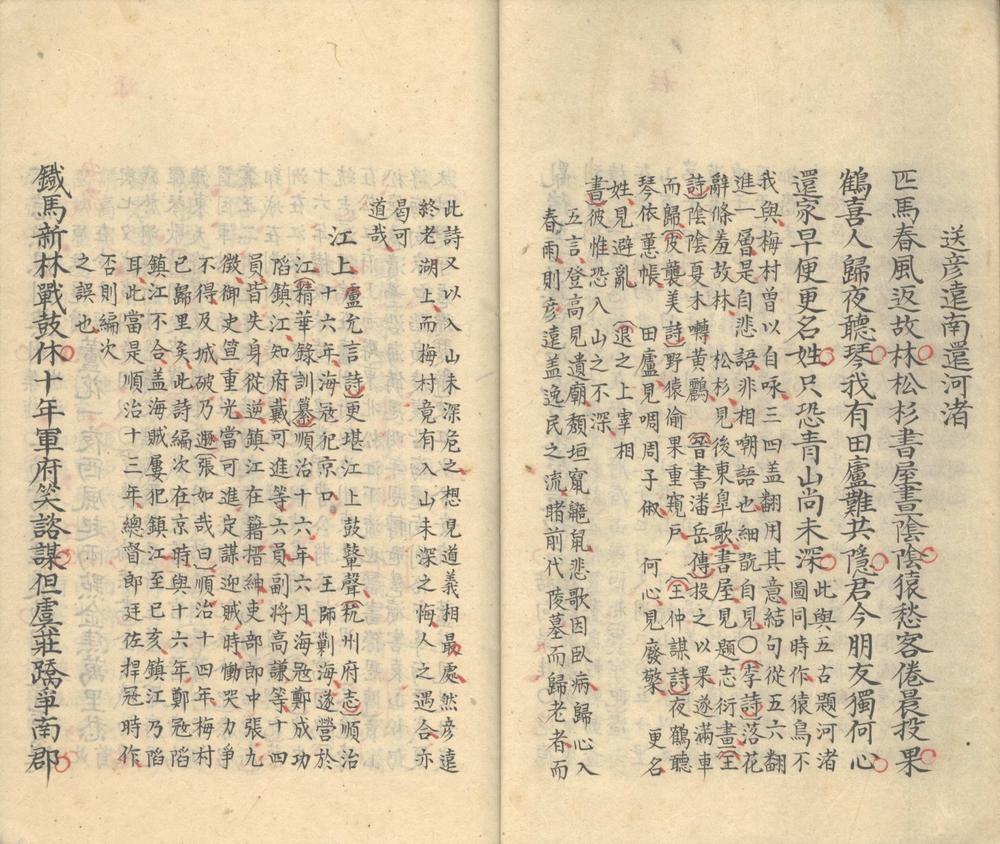 送彥遠南還河渚
匹馬春風返故林松杉書屋晝陰陰猿愁客倦晨投果
鶴喜人歸夜聽琴我有田廬難共隱君今朋友獨何心
還家早便更名姓只恐青山尚未深 此與五古題河渚
圖同時作猿鳥不
我與梅村曾以自咏三四盖翻用其意結句從五六翻
進一層是自悲語非相嘲語也細翫自見〇李詩落花
辭條羞故林 松杉見後東臯歌書屋見題志衍畫王
詩陰陰夏木囀黃鸝 晉書潘岳傳投之以果遂滿車
而歸皮襲美詩野猿偷果重窺戶 王仲謀詩夜鶴聽
琴依蕙帳 田廬見啁周子俶 何心見廢檠 更名
姓見避亂 退之上宰相
書彼惟恐入山之不深
五言登高見遺廟頹垣竄鼯鼠悲歌因臥病歸心入
春雨則彥遠盖逸民之流睹前代陵墓而歸老者而
此詩又以入山未深危之想見道義相最處然彥遠
終老湖上而梅村竟有入山未深之悔人之遇合亦
曷可
道哉
江上 盧允言詩更堪江上鼓鼙聲杭州府志順治
十六年海寇犯京口 王師剿海遂營於
江精華錄訓纂順治十六年六月海寇鄭成功
陷鎮江知府戴可進等六員副將高謙等十四
員皆失身從逆鎮江在籍搢紳吏部郎中張九
徵御史笪重光當可進定謀迎賊時慟哭力爭
不得及城破乃遯張如哉曰順治十四年梅村
已歸里矣此詩編次在京時與十六年鄭寇陷
鎮江不合盖海賊屢犯鎮江至己亥鎮江乃陷
耳此當是順治十三年總督郎廷佐捍寇時作
否則編次
之誤也
鐵馬新林戰鼓休十年軍府笑諮謀但虞莊蹻爭南郡